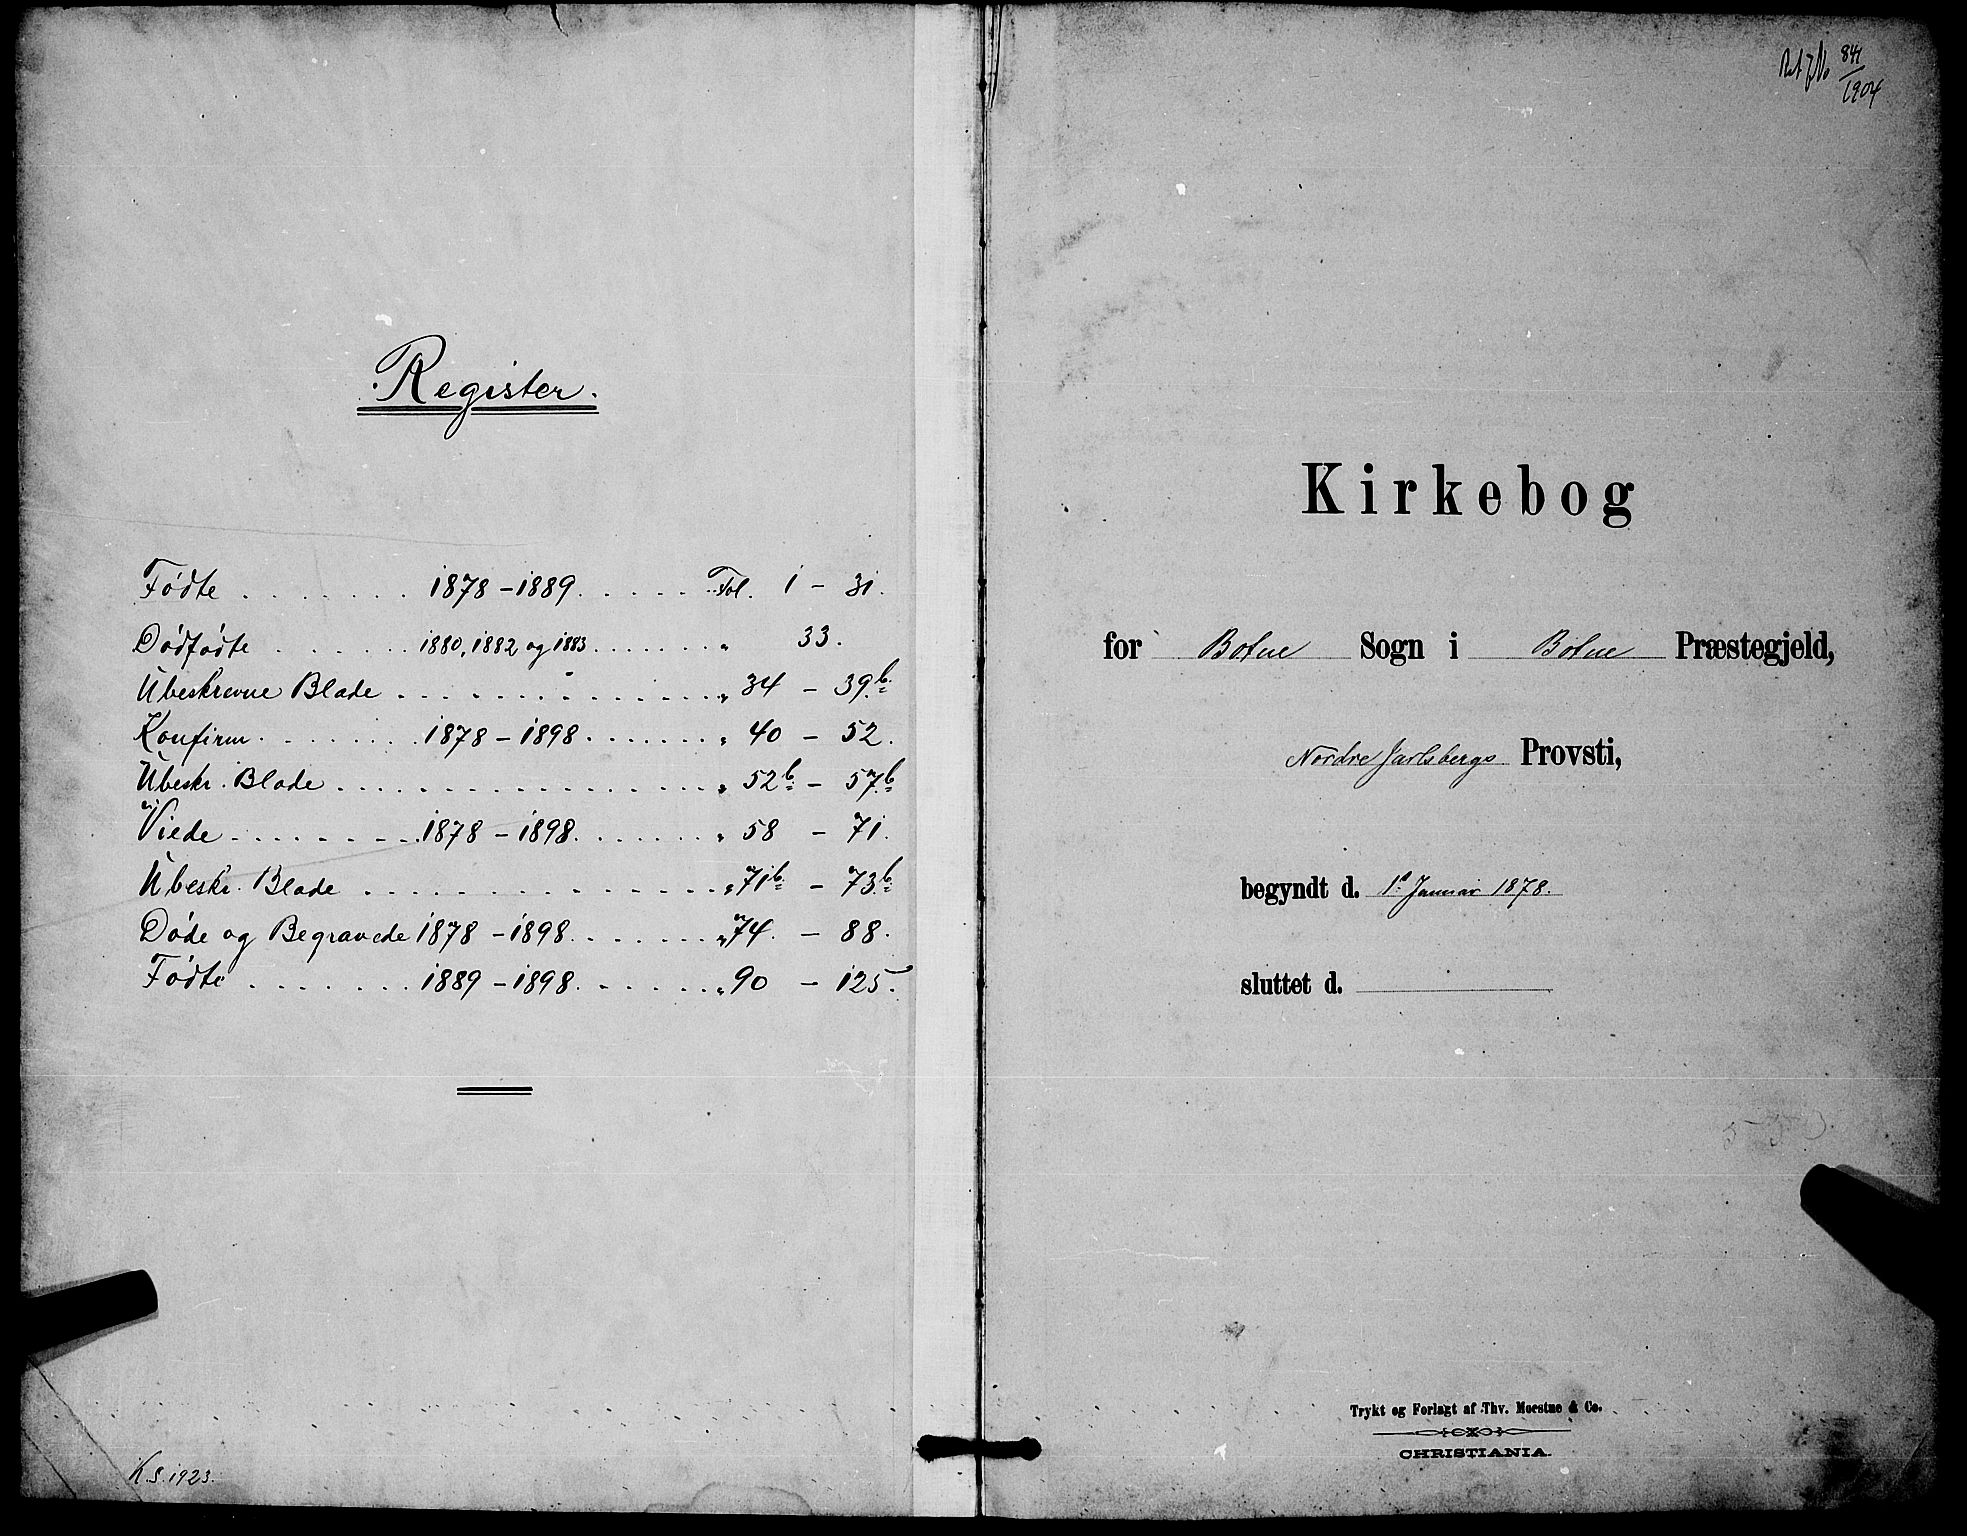 Register.
Fødte . . . . . . . 1878 – 1889 . . . . . . Fol. 1 – 31.
Dødfødte . . . . . . 1880, 1882 og 1883 . . . . . . . „ 33.
Ubeskrevne Blade . . . . . . . . . . . . . . „ 34 – 39b.
Konfirm. . . . . . . . 1878 – 1898 . . . . . . . „ 40 – 52.
Ubeskr. Blade . . . . . . . . . . . . . . . . „ 52b – 57b
Viede . . . . . . . . 1878 – 1898 . . . . . . . „ 58 – 71.
Ubeskr. Blade . . . . . . . . . . . . . . . „ 71b – 73b
Døde og Begravede 1878 – 1898 . . . . . . . „ 74. – 88.
Fødte . . . . . . . 1889 – 1898 . . . . . . . „ 90 – 125.
K.S. 1923.
J No 841/1904
Kirkebog
for Botne Sogn i Botne Præstegjeld,
Nordre Jarlsbergs Provsti,
begyndt d. 1e Januar 1878.
sluttet d.
Trykt og Forlagt af Thv. Moestue & Co.
CHRISTIANIA.